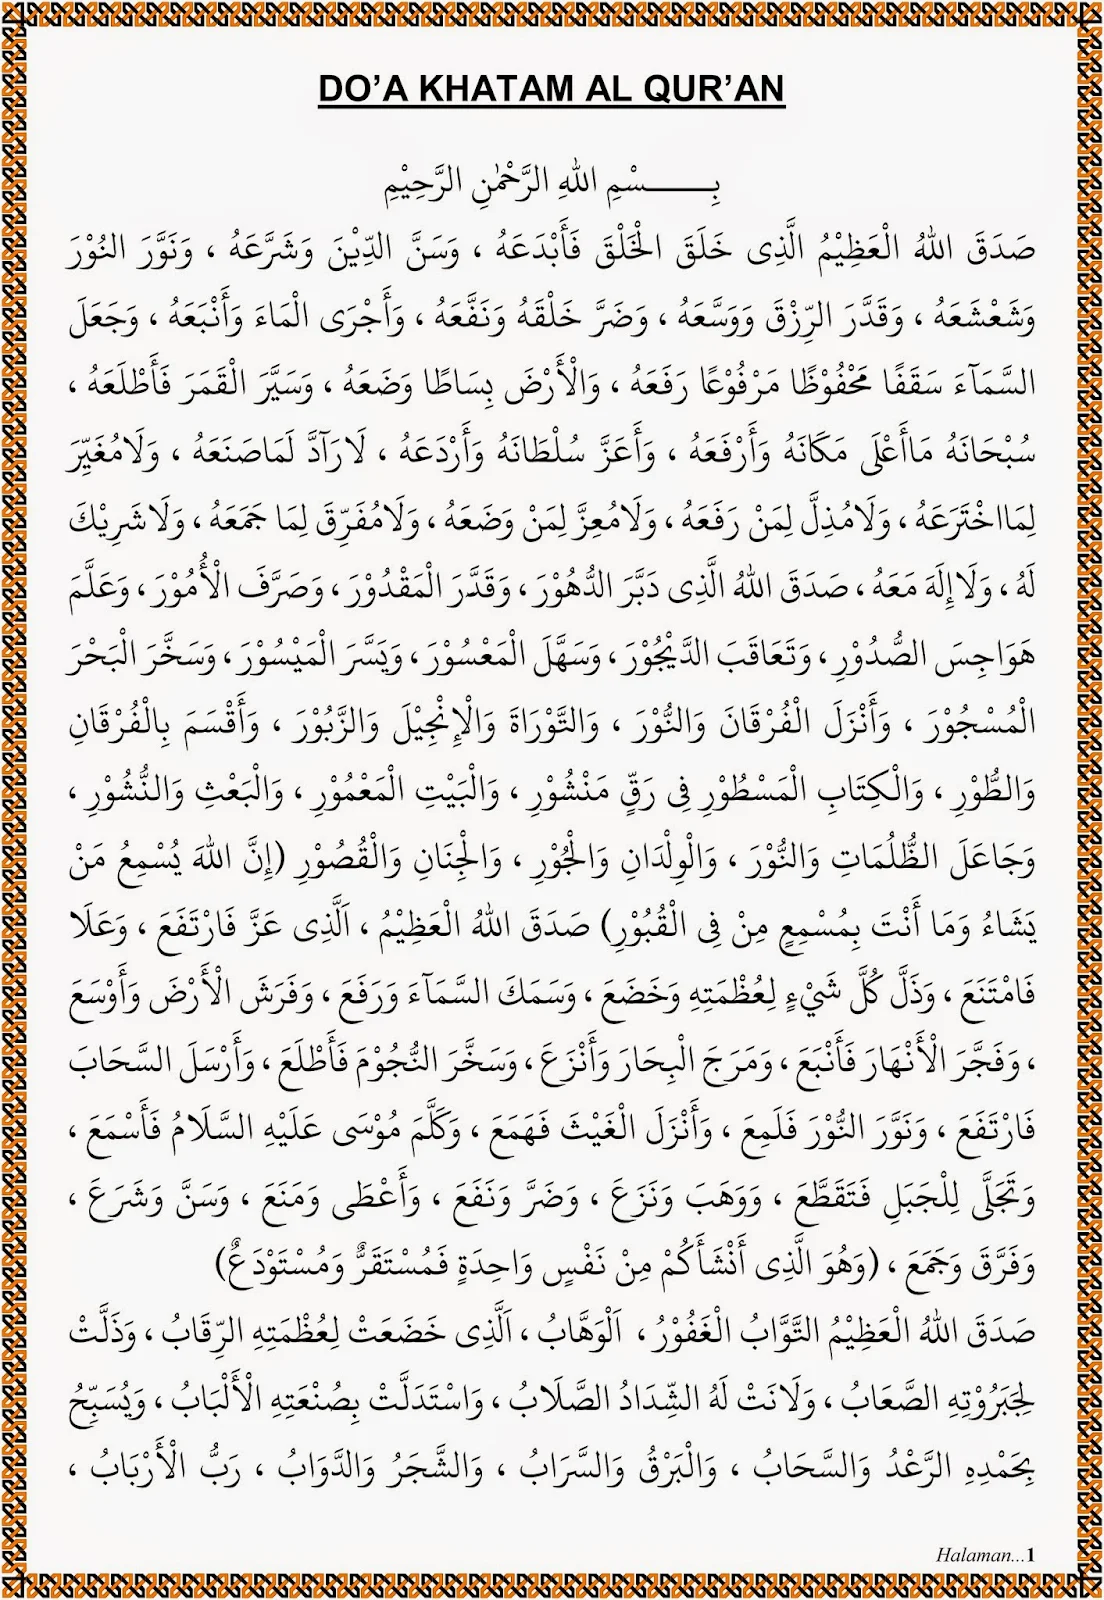 DO’A KHATAM AL QUR’AN
بِــــــسْمِ اللهِ الرَّحْمٰنِ الرَّحِيْمِ
صَدَقَ اللهُ الْعَظِيْمُ الَّذِى خَلَقَ الْخَلْقَ فَأَبْدَعَهُ ، وَسَنَّ الدِّيْنَ وَشَرَّعَهُ ، وَنَوَّرَ النُوْرَ
وَشَعْشَعَهُ ، وَقَدَّرَ الرِّزْقَ وَوَسَّعَهُ ، وَضَرَّ خَلْقَهُ وَنَفَّعَهُ ، وَأَجْرَى الْمَاءَ وَأَنْبَعَهُ ، وَجَعَلَ
السَّمَآءَ سَقَفًا مَحْفُوْظًا مَرْفُوْعًا رَفَعَهُ ، وَالْأَرْضَ بِسَاطًا وَضَعَهُ ، وَسَيَّرَ الْقَمَرَ فَأَطْلَعَهُ ،
سُبْحَانَهُ مَاأَعْلَى مَكَانَهُ وَأَرْفَعَهُ ، وَأَعَزَّ سُلْطَانَهُ وَأَرْدَعَهُ ، لَارَآدَّ لَمَاصَنَعَهُ ، وَلَامُغَيِّرَ
لِمَااخْتَرَعَهُ ، وَلَامُذِلَّ لِمَنْ رَفَعَهُ ، وَلَامُعِزَّ لِمَنْ وَضَعَهُ ، وَلَامُفَرِّقَ لِمَا جَمَعَهُ ، وَلَاشَرِيْكَ
لَهُ ، وَلَاإِلَهَ مَعَهُ ، صَدَقَ اللهُ الَّذِى دَبَّرَ الدُّهُوْرَ ، وَقَدَّرَ الْمَقْدُوْرَ ، وَصَرَّفَ الْأُمُوْرَ ، وَعَلَّمَ
هَوَاجِسَ الصُّدُوْرِ ، وَتَعَاقَبَ الدَّيْجُوْرَ ، وَسَهَّلَ الْمَعْسُوْرَ ، وَيَسَّرَ الْمَيْسُوْرَ ، وَسَخَّرَ الْبَحْرَ
الْمُسْجُوْرَ ، وَأَنْزَلَ الْفُرْقَانَ وَالنُّوْرَ ، وَالتَّوْرَاةَ وَالْإِنْجِيْلَ وَالزَّبُوْرَ ، وَأَقْسَمَ بِالْفُرْقَانِ
وَالطُّوْرِ ، وَالْكِتَابِ الْمَسْطُوْرِ فِى رَقٍّ مَنْشُوْرِ ، وَالْبَيْتِ الْمَعْمُوْرِ ، وَالْبَعْثِ وَالنُّشُوْرِ ،
وَجَاعَلَ الظُّلُمَاتِ وَالنُّوْرَ ، وَالْوِلْدَانِ وَالْحُوْرِ ، وَالْجِنَانِ وَالْقُصُوْرِ (إِنَّ اللهَ يُسْمِعُ مَنْ
يَشَاءُ وَمَا أَنْتَ بِمُسْمِعٍ مِنْ فِى الْقُبُوْرِ) صَدَقَ اللهُ الْعَظِيْمُ ، اَلَّذِى عَزَّ فَارْتَفَعَ ، وَعَلَا
فَامْتَنَعَ ، وَذَلَّ كُلَّ شَيْءٍ لِعُظْمَتِهِ وَخَضَعَ ، وَسَمَكَ السَّمَآءَ وَرَفَعَ ، وَفَرَشَ الْأَرْضَ وَأَوْسَعَ
، وَفَجَّرَ الْأَنْهَارَ فَأَنْبَعَ ، وَمَرَجَ الْبِحَارَ وَأَنْزَعَ ، وَسَخَّرَ النُّجُوْمَ فَأَطْلَعَ ، وَأَرْسَلَ السَّحَابَ
فَارْتَفَعَ ، وَنَوَّرَ النُّوْرَ فَلَمِعَ ، وَأَنْزَلَ الْغَيْثَ فَهَمَعَ ، وَكَلَّمَ مُوْسَى عَلَيْهِ السَّلَامُ فَأَسْمَعَ ،
وَتَجَلَّى لِلْجَبَلِ فَتَقَطَّعَ ، وَوَهَبَ وَنَزَعَ ، وَضَرَّ وَنَفَعَ ، وَأَعْطَى وَمَنَعَ ، وَسَنَّ وَشَرَعَ ،
وَفَرَّقَ وَجَمَعَ ، (وَهُوَ الَّذِى أَنْشَأَكُمْ مِنْ نَفْسٍ وَاحِدَةٍ فَمُسْتَقَرٌّ وَمُسْتَوْدَعٌ)
صَدَقَ اللهُ الْعَظِيْمُ التَّوَّابُ الْغَفُوْرُ ، اَلْوَهَّابُ ، اَلَّذِى خَضَعَتْ لِعُظْمَتِهِ الرِّقَابُ ، وَذَلَّتْ
لِجَبَرُوْتِهِ الصَّعَابُ ، وَلَانَتْ لَهُ الشِّدَادُ الصَّلَابُ ، وَاسْتَدَلَّتْ بِصُنْعَتِهِ الْأَلْبَابُ ، وَيُسَبِّحُ
بِحَمْدِهِ الرَّعْدُ وَالسَّحَابُ ، وَالْبَرْقُ وَالسَرَابُ ، وَالشَّجَرُ وَالدَّوَابُ ، رَبُّ الْأَرْبَابُ ،
Halaman...1